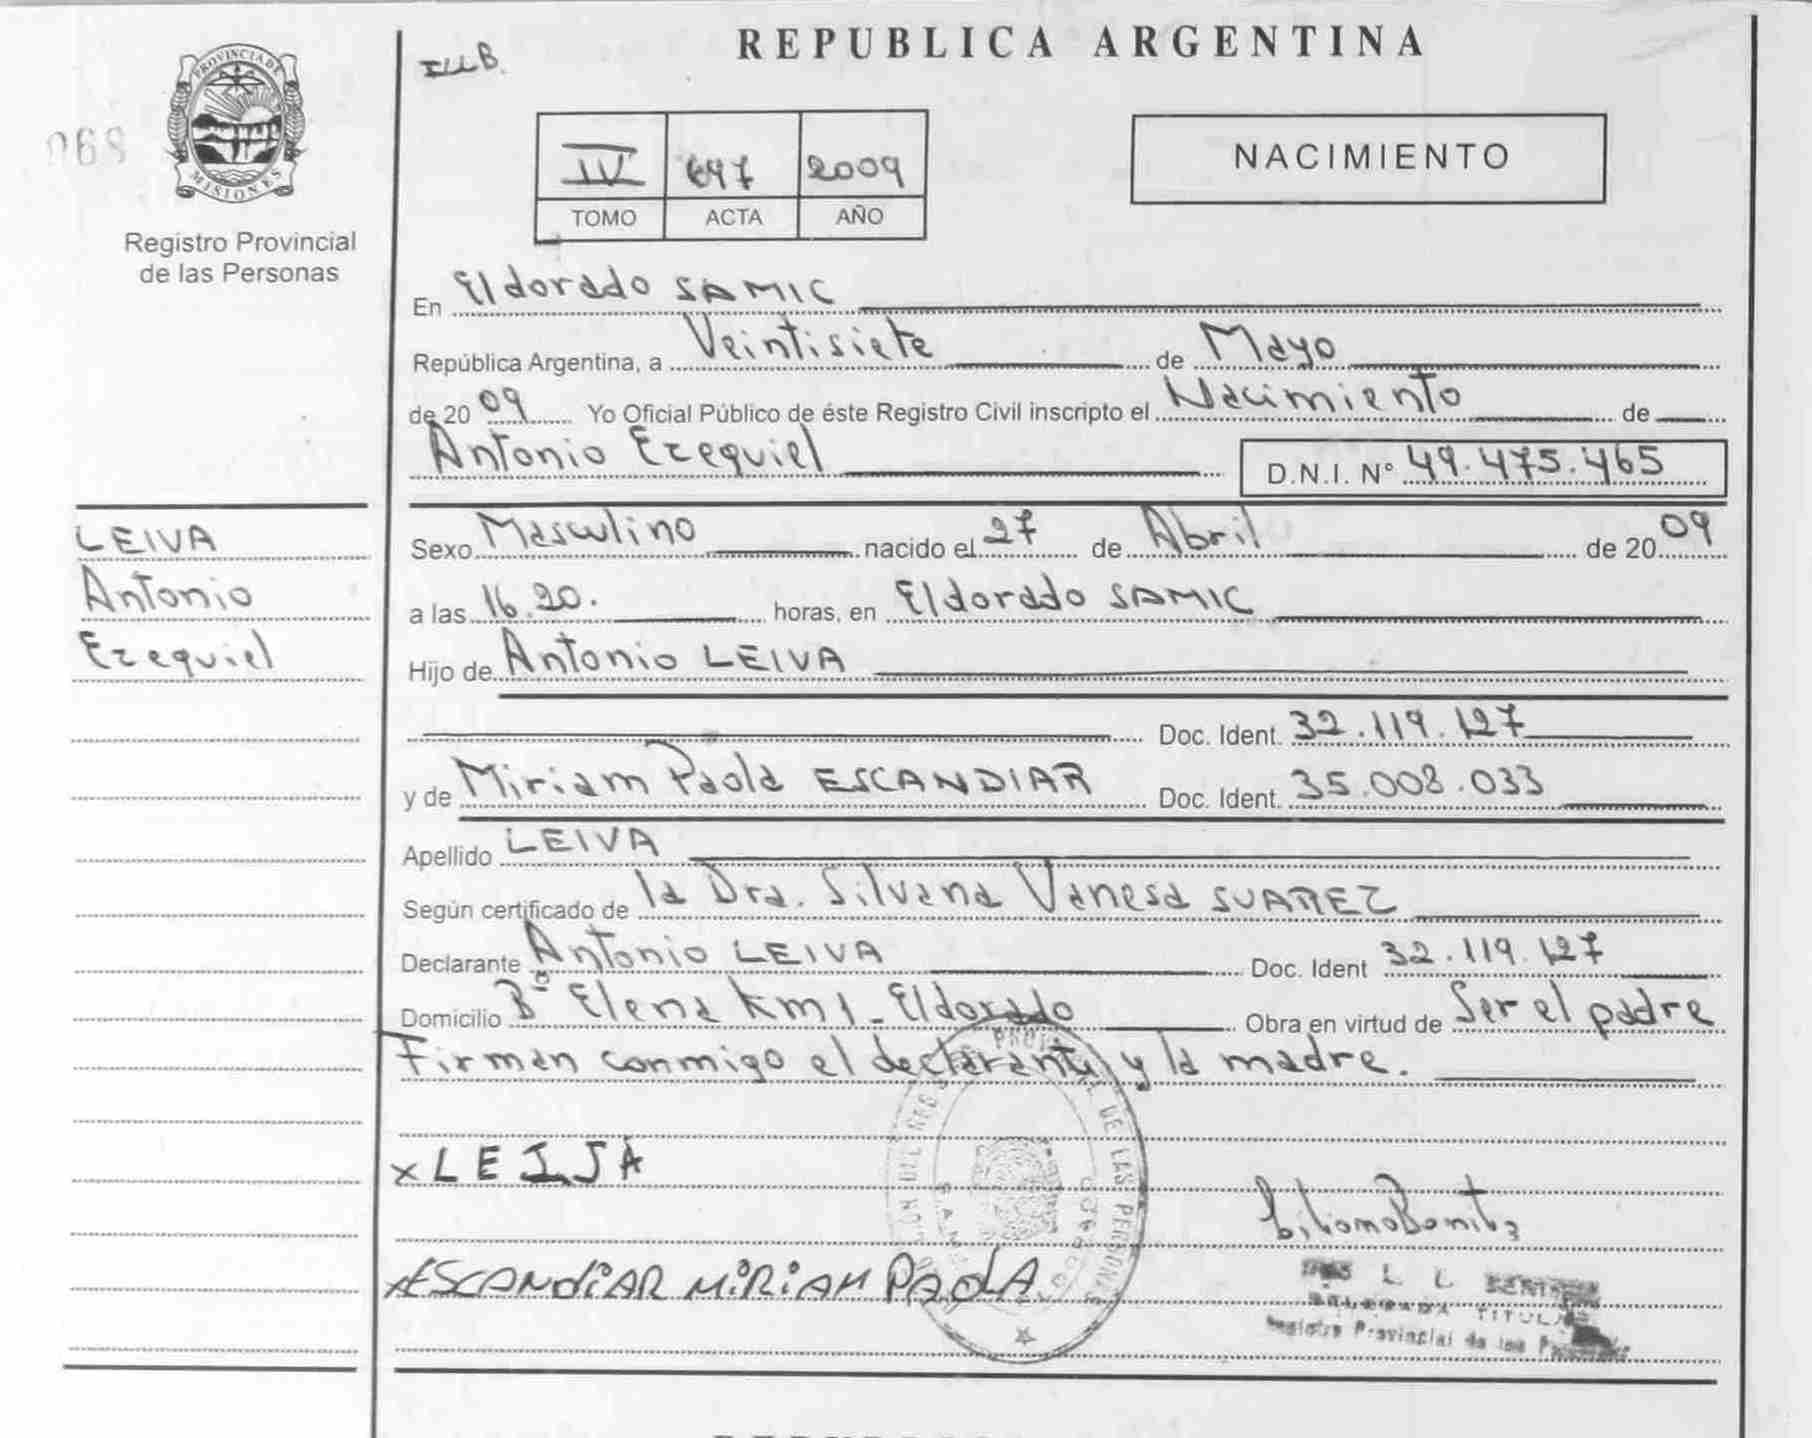 PROVINCIA DE
MISIONES
068
Registro Provincial
de las Personas
LEIVA
Antonio
Ezequiel
REPUBLICA ARGENTINA
IV 697 2009
TOMO ACTA AÑO
NACIMIENTO
En Eldorado SAMIC
República Argentina, a Veintisiete de Mayo
de 2009 Yo Oficial Público de éste Registro Civil inscripto el Nacimiento de
Antonio Ezequiel D.N.I. Nº 49.475.465
Sexo Masculino nacido el 27 de Abril de 2009
a las 16.20. horas, en Eldorado SAMIC
Hijo de Antonio LEIVA
Doc. Ident. 32.119.127
y de Miriam Paola ESCANDIAR Doc. Ident. 35.008.033
Apellido LEIVA
Según certificado de la Dra. Silvana Vanesa SUAREZ
Declarante Antonio LEIVA Doc. Ident 32.119.127
Domicilio Bº Elena km 1 - Eldorado Obra en virtud de Ser el padre
Firman conmigo el declarante y la madre.
x LEIJA
x ESCANDIAR MIRIAM PAOLA
DELEGADA TITULAR
Registro Provincial de las Personas